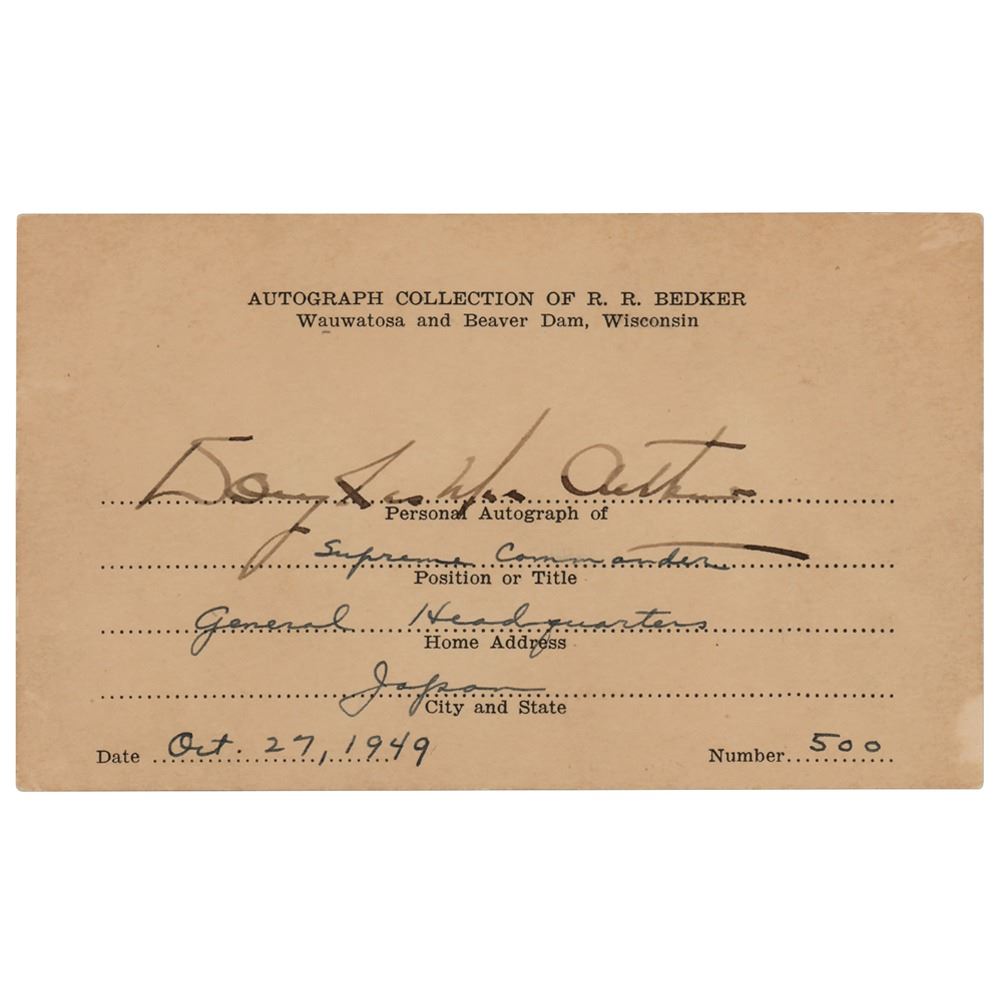 AUTOGRAPH COLLECTION OF R. R. BEDKER
Wauwatosa and Beaver Dam, Wisconsin
Douglas MacArthur
Personal Autograph of
Supreme Commander
Position or Title
General Headquarters
Home Address
Japan
City and State
Date Oct. 27, 1949 Number 500